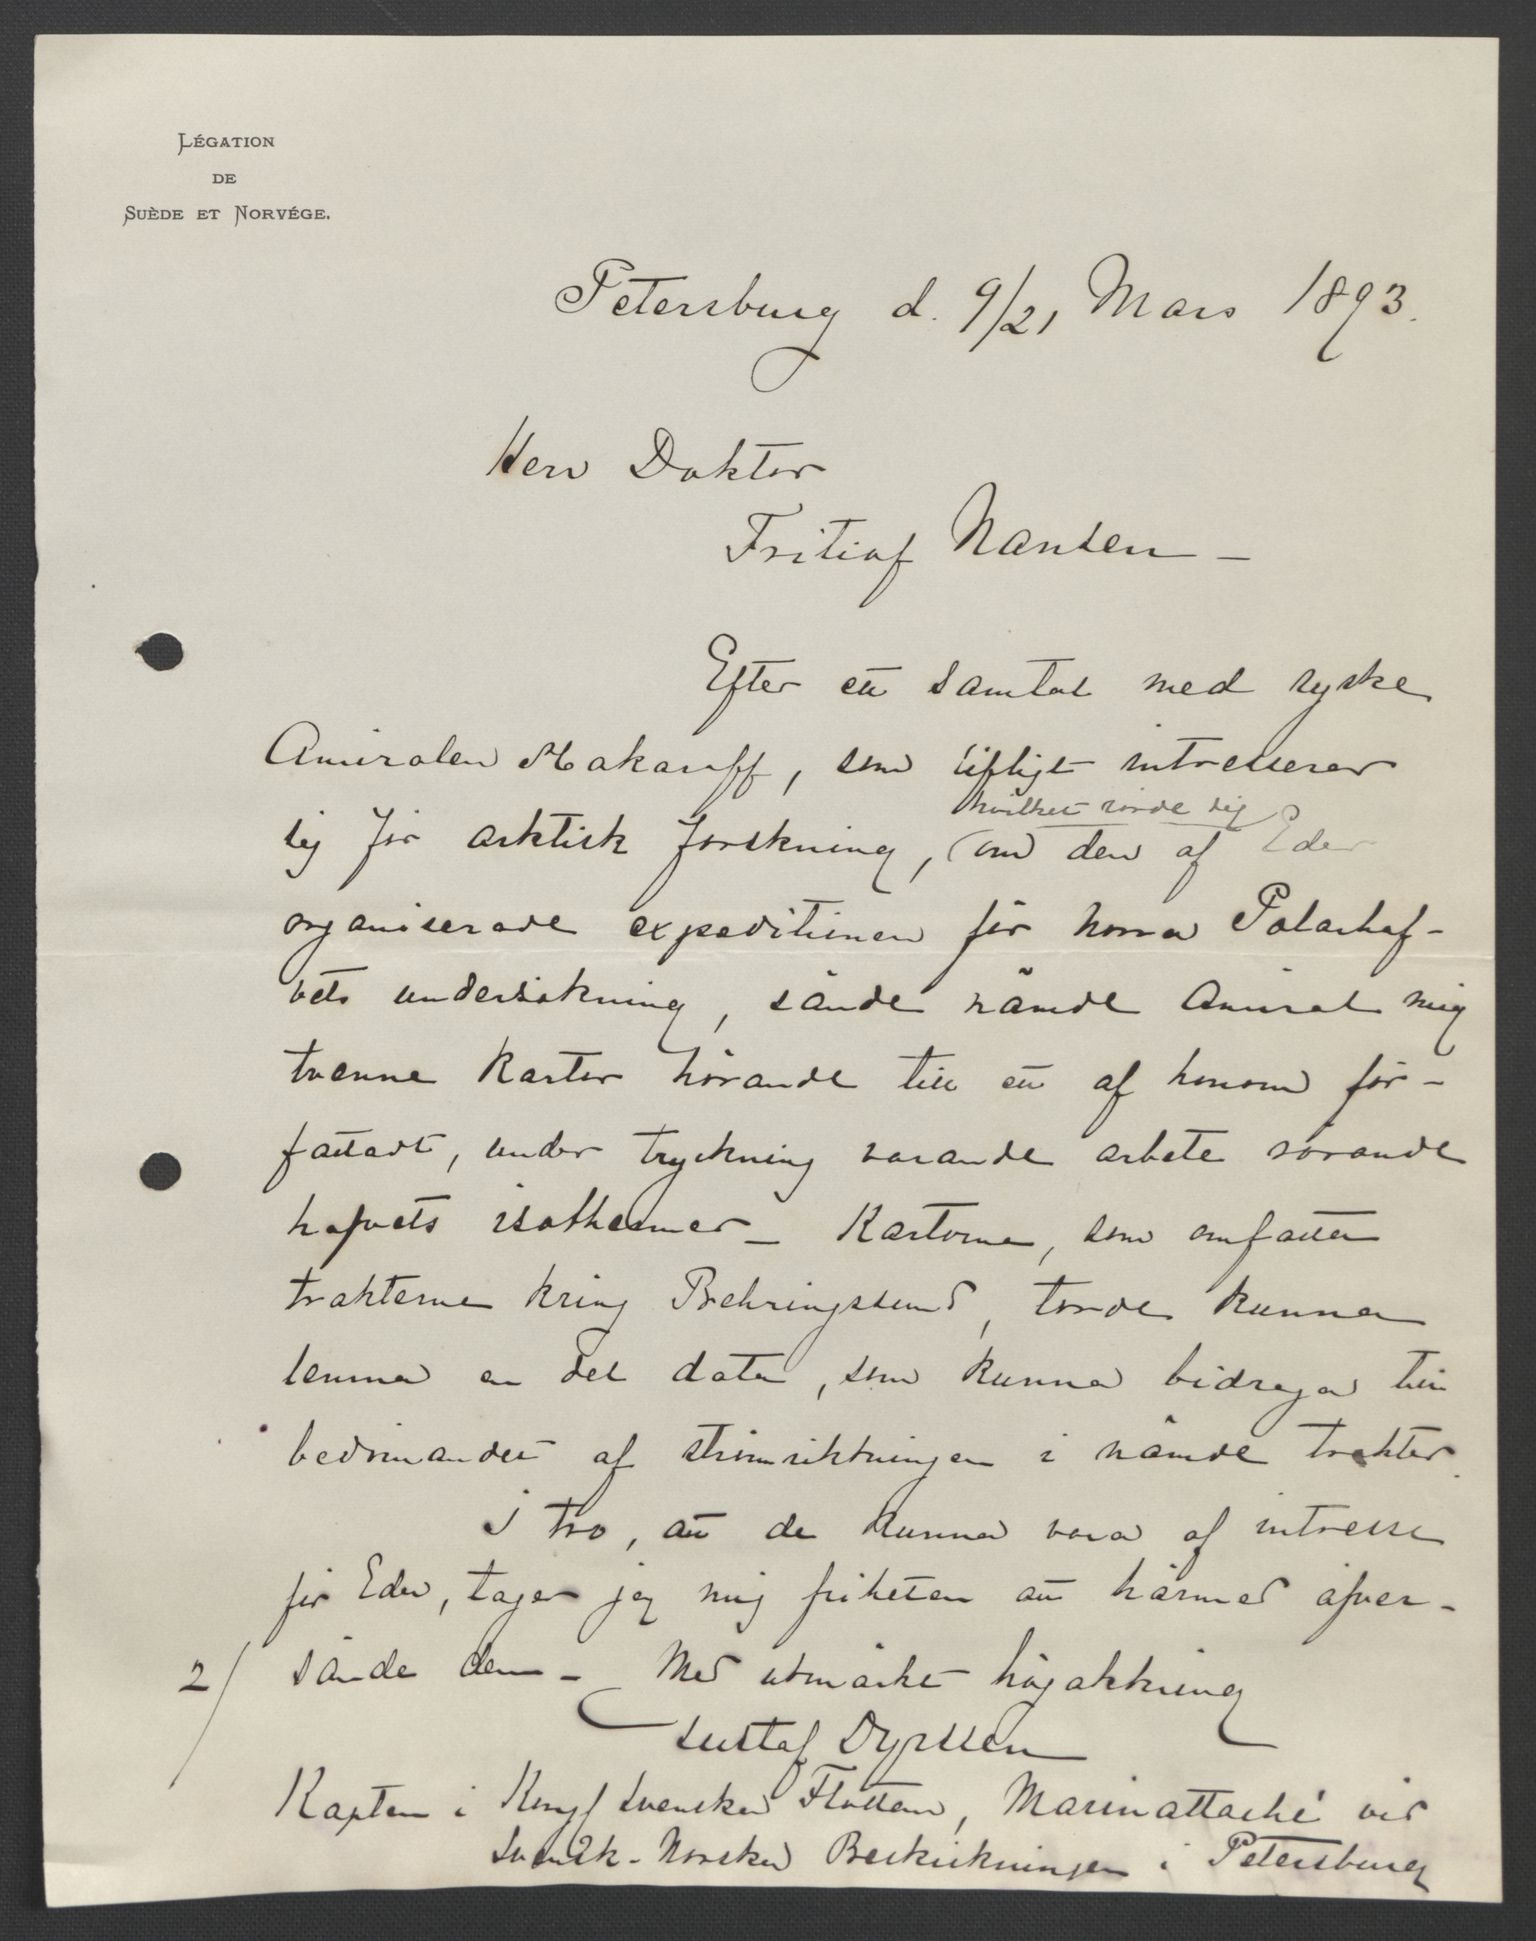 Légation
de
Suède et Norvége.
Petersburg d. 9/21 Mars 1893.
Herr Doktor
Fritiof Nansen –
Efter ett samtal med ryske
Amiralen Makaroff, som lifligt intresserar
hvilket rörde sig
sig för arktisk forskning, (om den af Eder
organiserade expeditionen för norra Polarhaf-
vets undersökning, sände nämde Amiral mig
tvenne kartor hörande till ett af honom för-
fattadt, under tryckning varande arbete rörande
hafvets isothermer – Kartorna, som omfatta
trakterna kring Behringssund, torde kunna
lemna en del data, som kunna bidraga till
bedömandet af strömriktningen i nämde trakter.
I tro, att de kunna vara af intresse
för Eder, tager jag mig friheten att härmed öfver-
2/ sända dem – Med utmärkt högaktning
Gustaf Dyrssen
Kapten i Kongl Svenska Flottan, Marinattaché vid
Svensk-Norska Beskickningen i Petersburg